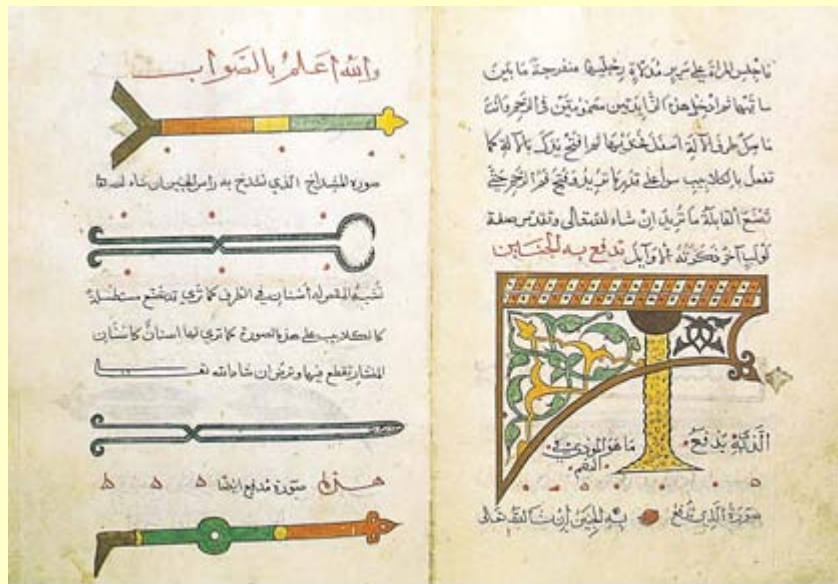 فاجلس المراة على سرير مدلاة رجليها منفرجة ما بين
ساقيها ثم ادخل هذه الزايدتين مضمومتين في الرحم وانت
ماسك طرف الآلة اسفل فخذيها ثم افتح يدك بالآلة كما
تفعل بالكلاليب سوا على قدر ما تريد فتح فم الرحم حتى
تصنع القابلة ما تريد ان شاء الله تعالى
لولب آخر ذكرته الاوايل تدفع به الجنين
الذي يدفع ما هو
صورة الذي تدفع به الجنين إن شا الله تعالى
والله أعلم بالصواب
صورة المشداخ الذي تشدخ به راس الجنين ان شاء الله
تشبه المقص له أسنان في الطرف كما ترى تصنع مستطيلة
كالكلاليب على هذه الصورة كما ترى لها اسنان كاسنان
المنشار تقطع بها وترض ان شاء الله تعالى
هذه صورة مدفع ايضا